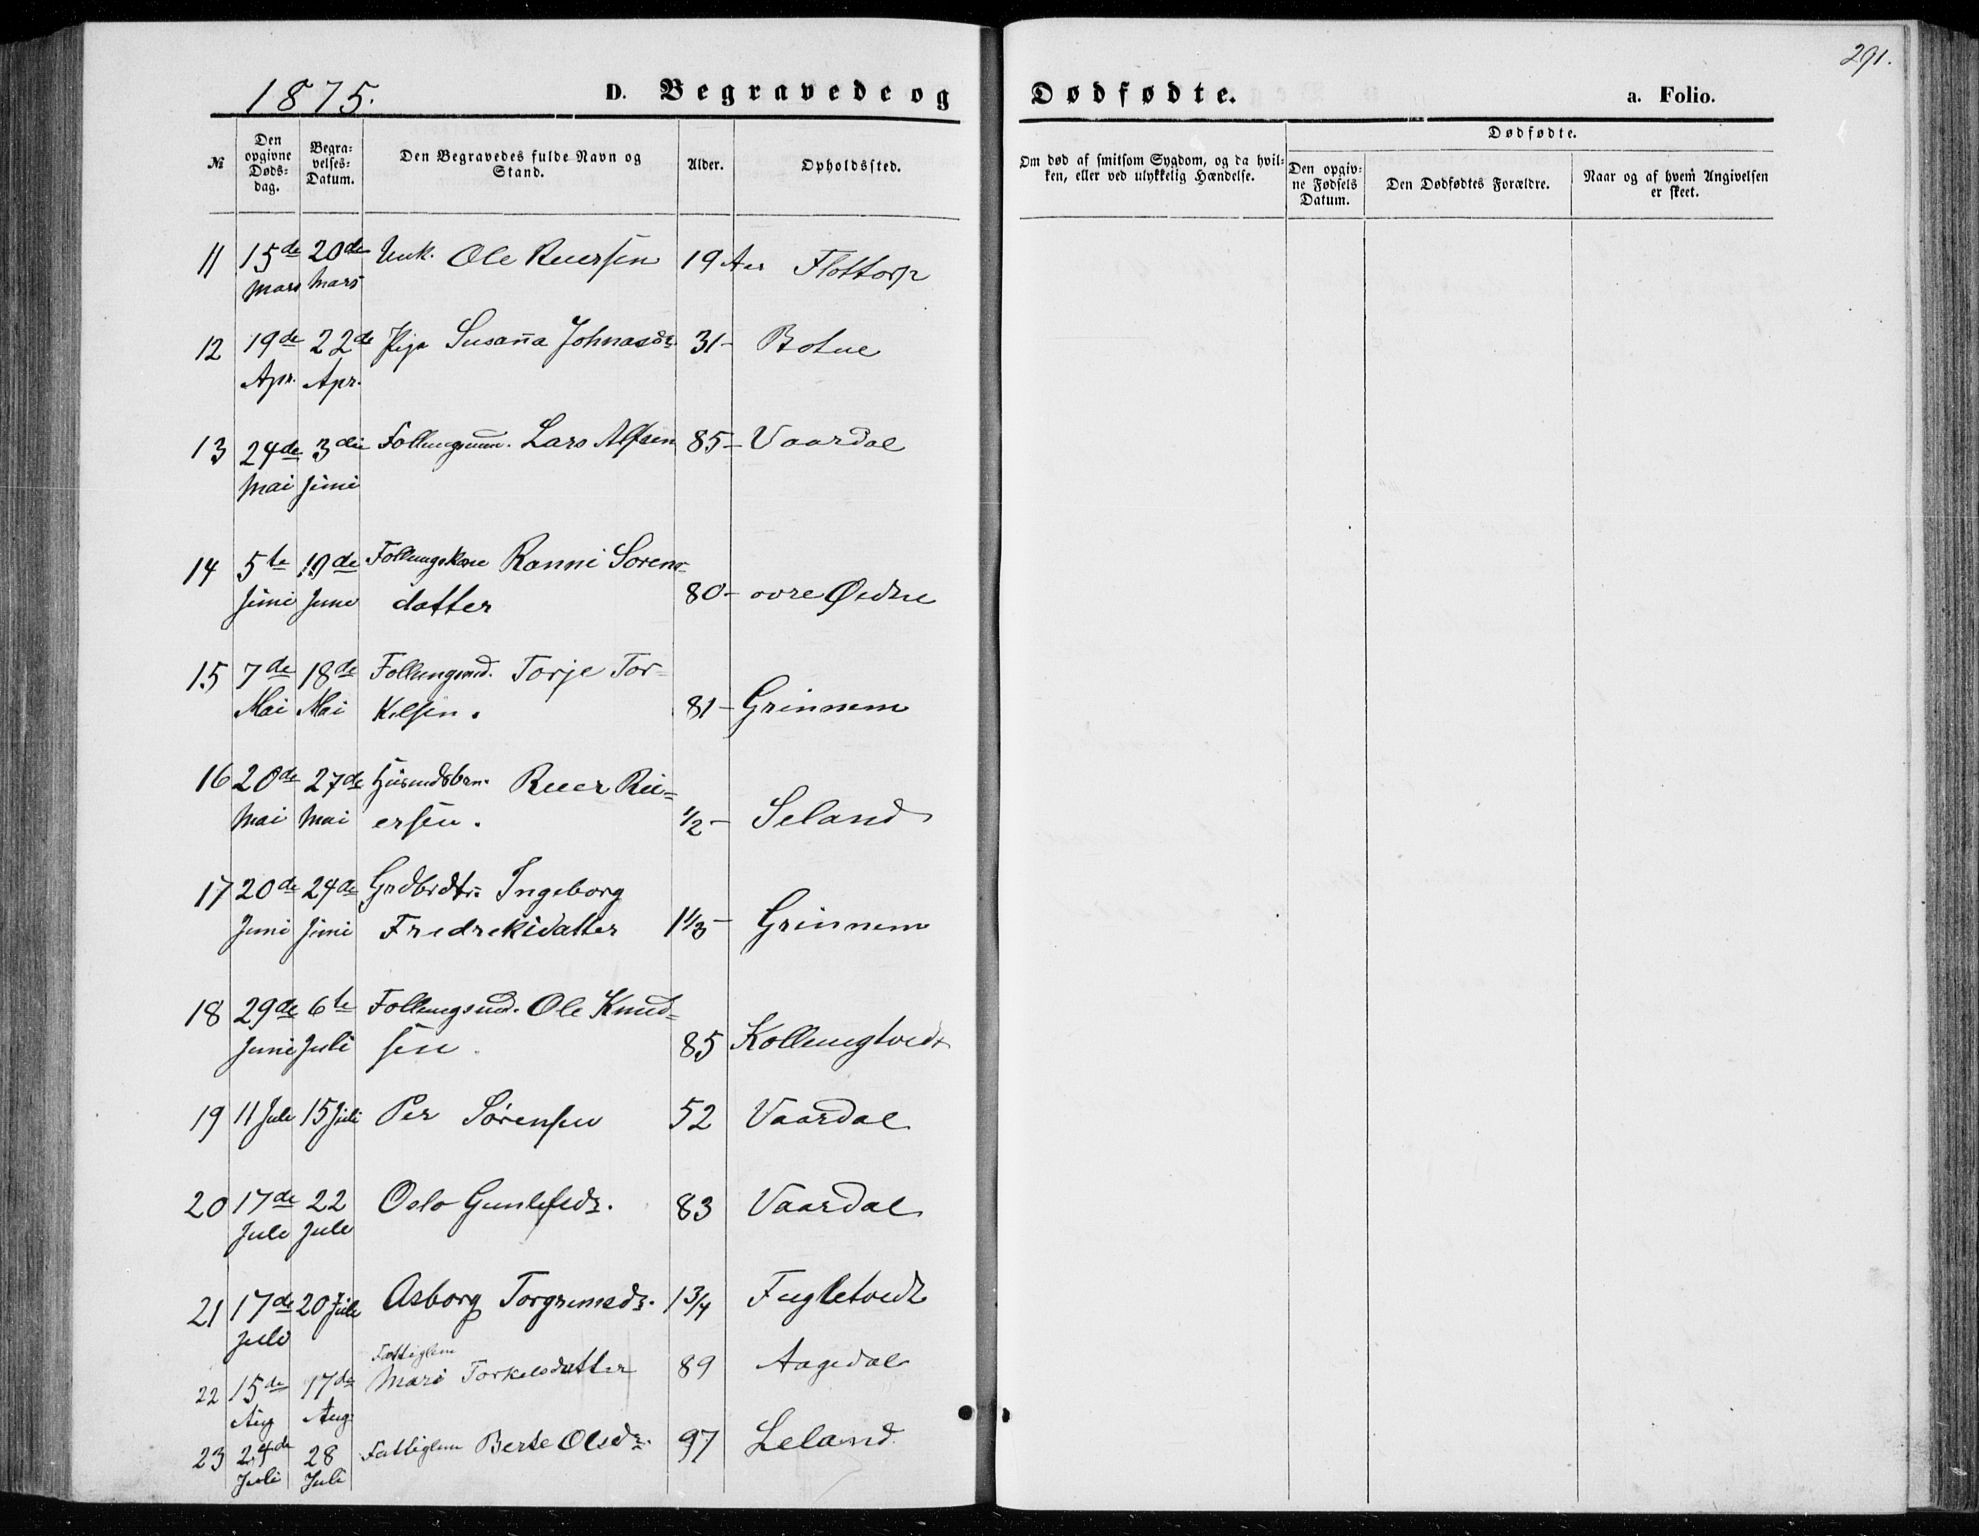 291.
1875. D. Begravede og Dødfødte. a. Folio.
№ Den opgivne Dødsdag. Begravelses-Datum. Den Begravedes fulde Navn og Stand. Alder. Opholdssted. Om død af smitsom Sygdom, og da hvilken, eller ved ulykkelig Hændelse. Dødfødte. Den opgivne Fødsels Datum. Den Dødfødtes Forældre. Naar og af hvem Angivelsen er skeet.
11 15de 20de Unk. Ole Reiersen 19 Aar Flottorp
Mars Mars
12 19de 22de Pige Susaña Johnasdr. 31- Botne
Apr. Apr.
13 24de 3die Follungsmn. Lars Alfsen 85- Vaardal
Mai Juni
14 5te 10de Follungskone Ranni Sorens-
Juni Juni datter 80- ovre Øidne
15 7de 18de Follungmd. Torje Tor-
Mai Mai Kelsen. 81- Grinnem
16 20de 27de Husmdsbrn. Reier Rei=
Mai Mai ersen. 1/2- Seland
17 20de 24de Grdbrdtr. Ingeborg
Juni Juni Fredreksdatter 1 1/3- Grinnem
18 29de 6te Follungsmd. Ole Knud=
Juni Juli sen. 85 Kollungtvedt
19 11 Juli 15 Juli Per Sørensen 52 Vaardal
20 17de 22 Oslo Gunlefsdr. 83 Vaardal
Juli Juli
21 17de 20 Juli Asborg Torgrimsdr. 1 3/4 Fugletvedt
Juli
Fattiglem
22 15de 17de Mari Torkelsdatter 89 Aagedal
Aug Aug.
23 24de 28 Fattiglem Berte Olsdr. 97 Leland
Juli Juli